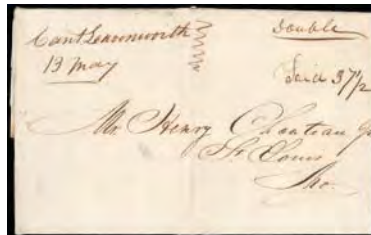 Cant Leavenworth
13 May
Double
Paid 37 1/2
Mr. Henry Chouteau
St Louis
Mo.